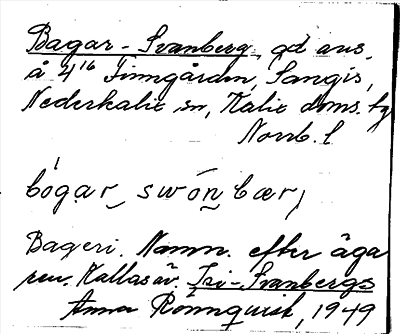 Bagar-Svanberg, gd ans.
å 4¹⁶ Finngården, Sangis,
Nederkalix sn, Kalix doms. tg
Norrb. l
bógar swónbær,
Bageri. Namn. efter äga
ren. Kallas äv.
-Svanbergs
Anna Rönnquist, 1949